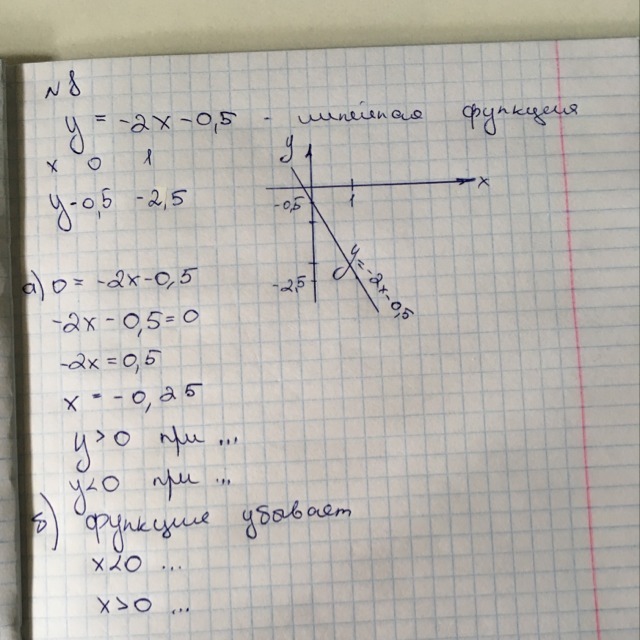 № 8
y = -2x - 0,5 - линейная функция
x 0 1
y -0,5 -2,5
y
x
-0,5
1
-2,5
y = -2x - 0,5
а) 0 = -2x - 0,5
-2x - 0,5 = 0
-2x = 0,5
x = -0,25
y > 0 при ...
y < 0 при ...
б) функция убывает
x < 0 ...
x > 0 ...